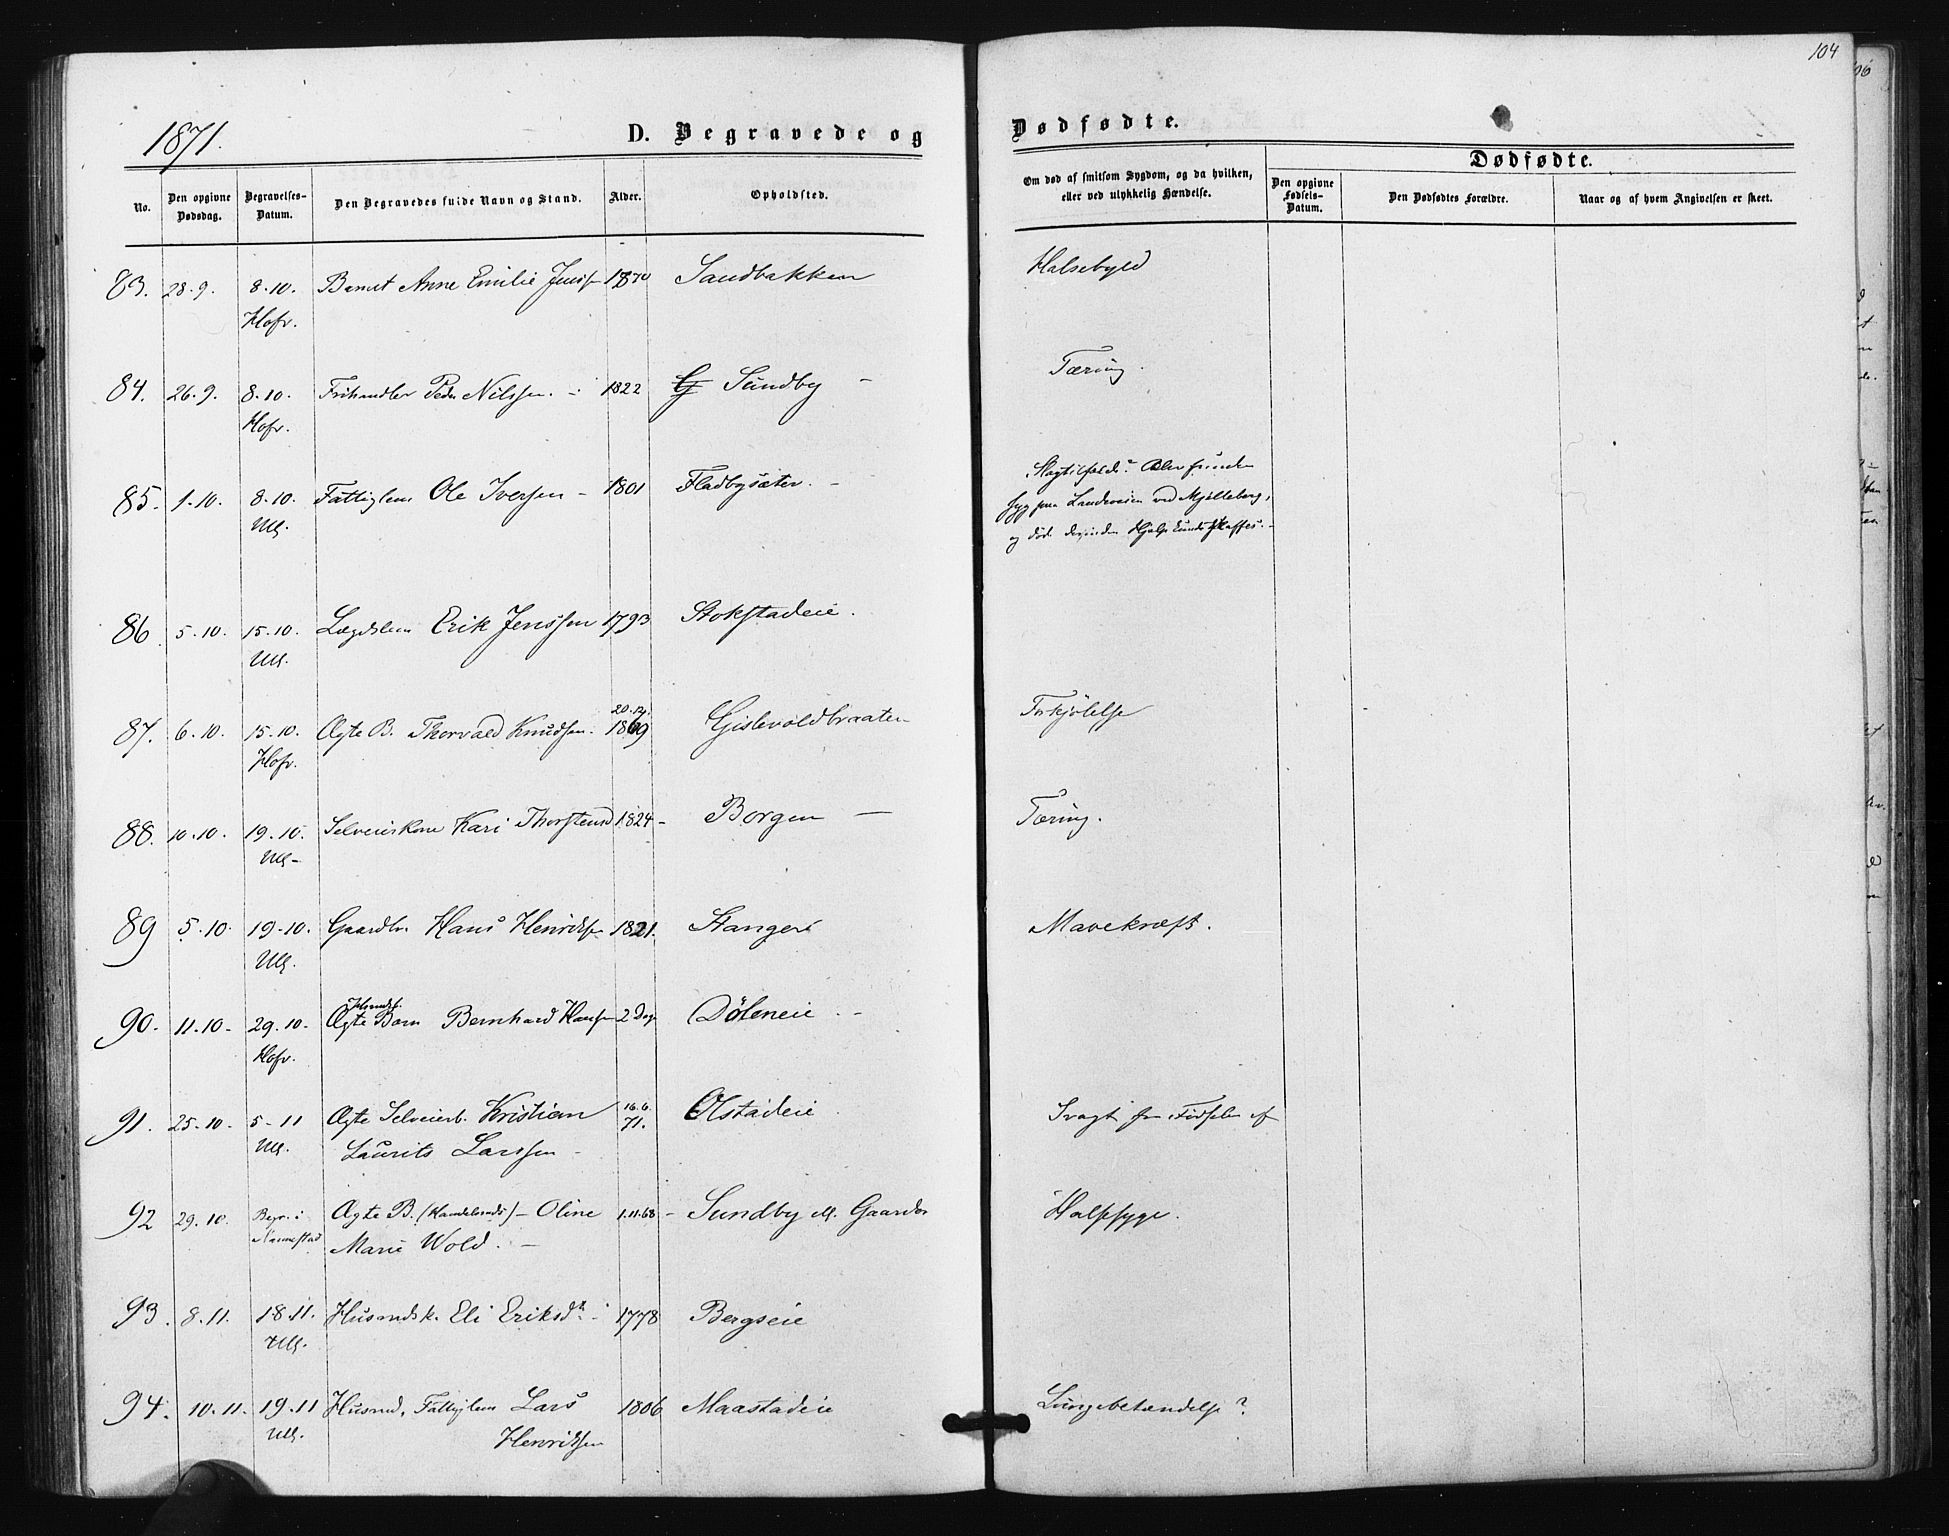 104
1871.
D. Begravede og
Dødfødte.
No.
Den opgivne Dødsdag.
Begravelses-Datum.
Den Begravedes fulde Navn og Stand.
Alder.
Opholdsted.
Om død af smitsom Sygdom, og da hvilken, eller ved ulykkelig Hændelse.
Dødfødte.
Den opgivne Fødsels-Datum.
Den Dødfødtes Forældre.
Naar og af hvem Angivelsen er skeet.
83. 28.9. 8.10. Barnet Anne Emilie Jenss 1870 Sandbakken Halsebyld
Hofv.
84. 26.9. 8.10. Frihandler Peder Nilssen. 1822 Sundby - Tæring.
Hofv.
85. 1.10. 8.10. Fattiglem Ole Iversen - 1801 Fladbysæter. - Slagtilfælde? Blev funden
Ull. syg paa Landeveien ved Mjølleberg,
og døde
86 5.10. 15.10. Lægdslem Erik Jenssen 1793 Stokstadeie.
Ull.
87. 6.10. 15.10. Ægte B. Thorvald Knudsen. 20.12. 1869 Gislevoldbraaten Forkjølelse
Hofv.
88. 10.10. 19.10. Selveierkone Kari Thorstensd 1824 - Borgen - Tæring.
Ull-
89 5.10. 19.10. Gaardbr. Hans Henriks 1821. Stanger Mavekræft.
Ull.
90. 11.10- 29.10. Ægte Husmdsb. Barn Bernhard Hanse 2 Dage Døleneie -
Hofv.
91. 25.10- 5-11 Ægte Selveierb. Kristian 16.6. 71. Olstadeie Svagt fra Fødselen af
Ull. Laurits Larssen -
92 29.10. Begr. i Ægte B. (Handelsmds) - Oline 1.11.68 - Sundby M. Gaarder Halssyge.
Nannestad Marie Wold. -
93. 8.11. 18.11. Husmdsk. Eli Eriksdr. - 1778 Bergseie
Ull.
94. 10.11. 19.11 Husmd, Fattiglem Lars 1806 Maastadeie Lungebetændelse?
Ull. Henriksen